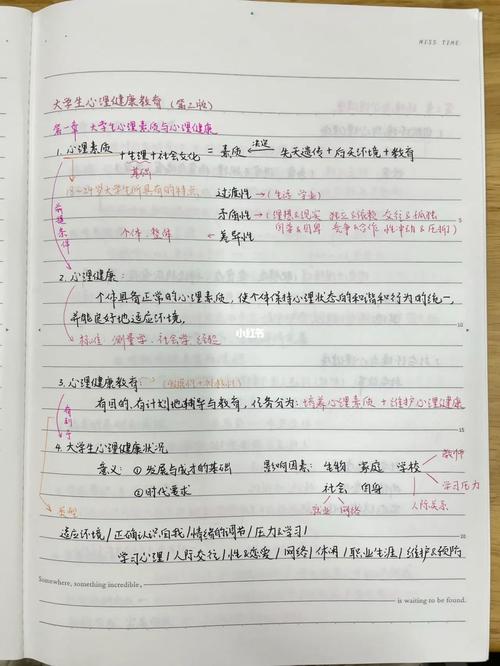 MISS TIME
大学生心理健康教育（第三版）
第一章 大学生心理素质与心理健康
1. 心理素质 + 生理 + 社会文化 = 素质 ←决定 先天遗传 + 后天环境 + 教育
基础
18~24岁大学生所具有的特点 过渡性 →（生活 学业）
前提条件
矛盾性 →（理想&现实 独立&依赖 交往&孤独
竞争&合作 性冲动&压抑）
个体、整体 ← 差异性
5
2. 心理健康：
个体具备正常的心理素质，使个体保持心理状态的和谐和行为的统一，
并能良好地适应环境。
10
小红书
标准：测量学、社会学、经验
3. 心理健康教育：
有目的、有计划地辅导与教育，任务分为：培养心理素质 + 维护心理健康
有利于
15
4. 大学生心理健康状况
教师
意义：①发展与成才的基础 影响因素：生物 家庭 学校
学习压力
②时代要求 社会 自身
人际关系
就业 网络
类型
适应环境/正确认识自我/情绪的调节/压力&学习/
20
学习心理/人际交往/性&恋爱/网络/休闲/职业生涯/维护&预防
Somewhere, something incredible,
is waiting to be found.